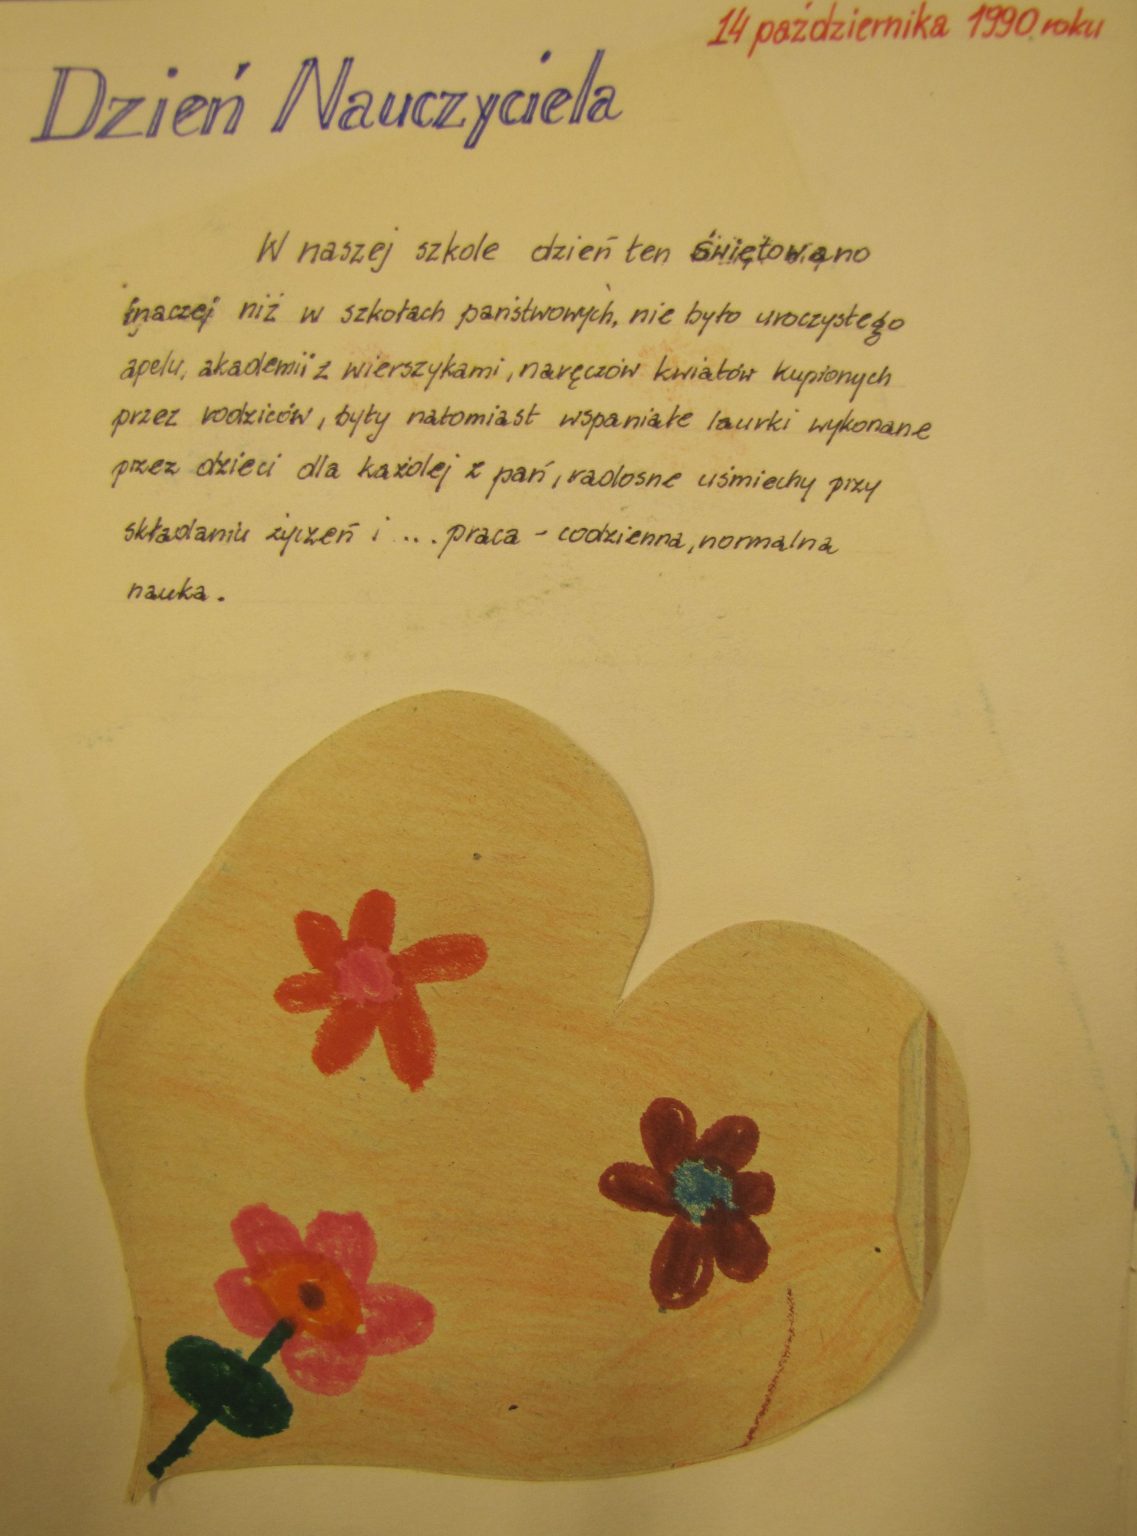 14 października 1990 roku
Dzień Nauczyciela
W naszej szkole dzień ten świętowano
inaczej niż w szkołach państwowych, nie było uroczystego
apelu, akademii z wierszykami, naręczów kwiatów kupionych
przez rodziców, były natomiast wspaniałe laurki wykonane
przez dzieci dla każdej z pań, radosne uśmiechy przy
składaniu życzeń i ... praca - codzienna, normalna
nauka.